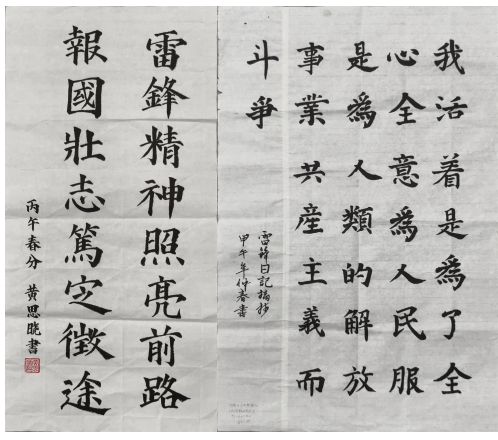 我活着是為了全
心全意為人民服
是為人類的解放
事業共産主義而
斗爭
雷鋒日記摘抄
甲午年仲春書
雷鋒精神照亮前路
報國壯志篤定徵途
丙午春分 黄思晓書